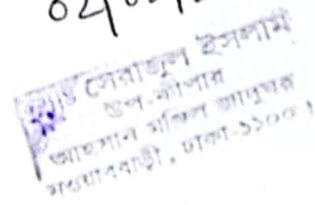 ০২/০
মোঃ সেরাজুল ইসলাম
উপ-কীপার
আহসান মঞ্জিল জাদুঘর
নওয়াববাড়ী, ঢাকা-১১০০।